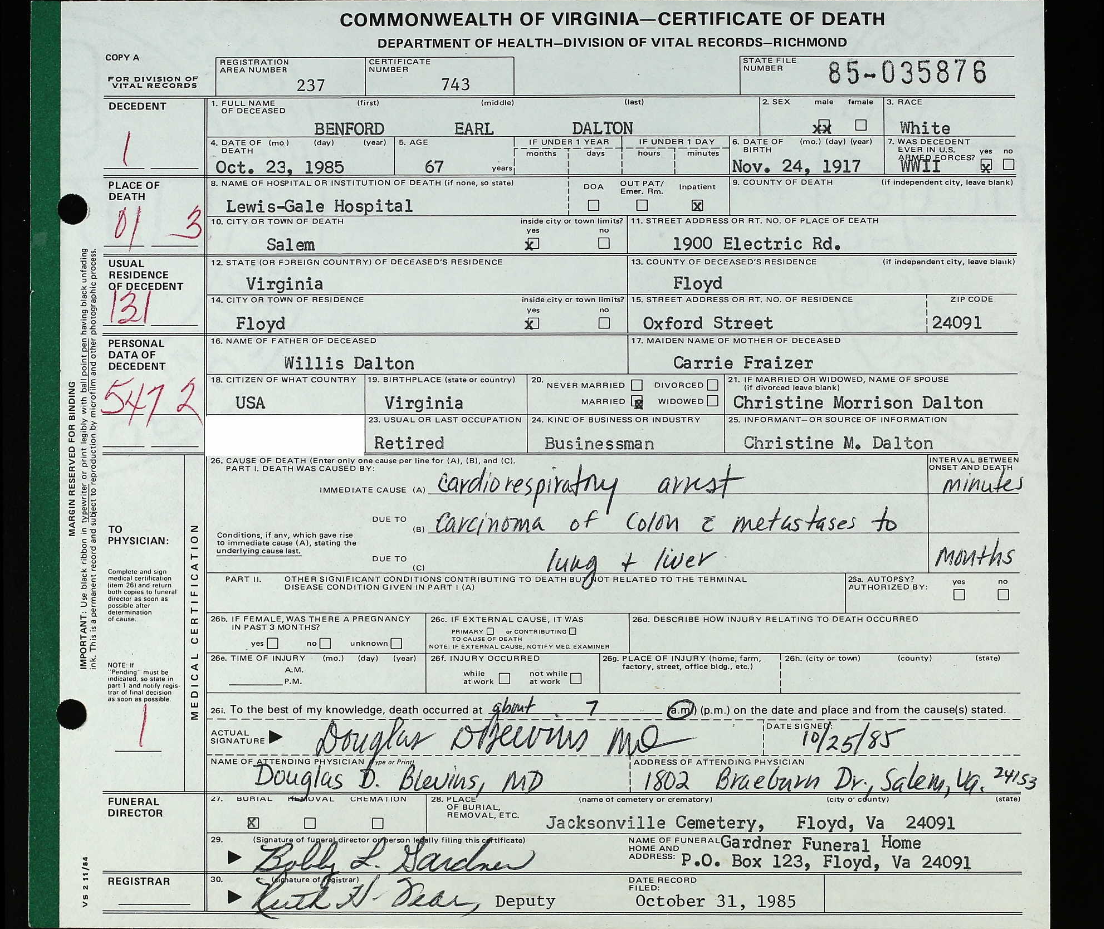 COMMONWEALTH OF VIRGINIA—CERTIFICATE OF DEATH
DEPARTMENT OF HEALTH—DIVISION OF VITAL RECORDS—RICHMOND
COPY A
FOR DIVISION OF VITAL RECORDS
REGISTRATION AREA NUMBER 237
CERTIFICATE NUMBER 743
STATE FILE NUMBER 85-035876
DECEDENT
1
1. FULL NAME OF DECEASED (first) (middle) (last)
BENFORD EARL DALTON
2. SEX male female
xx
3. RACE
White
4. DATE OF DEATH (mo) (day) (year)
Oct. 23, 1985
5. AGE
67 years
IF UNDER 1 YEAR months days
IF UNDER 1 DAY hours minutes
6. DATE OF BIRTH (mo.) (day) (year)
Nov. 24, 1917
7. WAS DECEDENT EVER IN U.S. ARMED FORCES? yes no
WWII x
PLACE OF DEATH
01 3
8. NAME OF HOSPITAL OR INSTITUTION OF DEATH (if none, so state)
Lewis-Gale Hospital
DOA OUT PAT/ Emer. Rm. Inpatient
x
9. COUNTY OF DEATH (if independent city, leave blank)
10. CITY OR TOWN OF DEATH inside city or town limits? yes no
Salem x
11. STREET ADDRESS OR RT. NO. OF PLACE OF DEATH
1900 Electric Rd.
USUAL RESIDENCE OF DECEDENT
131
12. STATE (OR FOREIGN COUNTRY) OF DECEASED'S RESIDENCE
Virginia
13. COUNTY OF DECEASED'S RESIDENCE (if independent city, leave blank)
Floyd
14. CITY OR TOWN OF RESIDENCE inside city or town limits? yes no
Floyd x
15. STREET ADDRESS OR RT. NO. OF RESIDENCE ZIP CODE
Oxford Street 24091
PERSONAL DATA OF DECEDENT
547 2
16. NAME OF FATHER OF DECEASED
Willis Dalton
17. MAIDEN NAME OF MOTHER OF DECEASED
Carrie Fraizer
18. CITIZEN OF WHAT COUNTRY
USA
19. BIRTHPLACE (state or country)
Virginia
20. NEVER MARRIED DIVORCED
MARRIED x WIDOWED
21. IF MARRIED OR WIDOWED, NAME OF SPOUSE (if divorced leave blank)
Christine Morrison Dalton
23. USUAL OR LAST OCCUPATION
Retired
24. KIND OF BUSINESS OR INDUSTRY
Businessman
25. INFORMANT—OR SOURCE OF INFORMATION
Christine M. Dalton
MARGIN RESERVED FOR BINDING
IMPORTANT: Use black ribbon in typewriter or print legibly with ball point pen having black unfading
ink. This is a permanent record and subject to reproduction by microfilm and other photographic process.
TO PHYSICIAN:
Complete and sign
medical certification
(item 26) and return
both copies to funeral
director as soon as
possible after
determination
of cause.
NOTE: If
"Pending" must be
indicated, so state in
part 1 and notify regis-
trar of final decision
as soon as possible.
1
MEDICAL CERTIFICATION
26. CAUSE OF DEATH (Enter only one cause per line for (A), (B), and (C).
PART I. DEATH WAS CAUSED BY:
INTERVAL BETWEEN ONSET AND DEATH
IMMEDIATE CAUSE (A) Cardiorespiratory arrest minutes
DUE TO (B) Carcinoma of Colon c̄ metastases to
Conditions, if any, which gave rise
to immediate cause (A), stating the
underlying cause last.
DUE TO (C) lung + liver months
PART II. OTHER SIGNIFICANT CONDITIONS CONTRIBUTING TO DEATH BUT NOT RELATED TO THE TERMINAL
DISEASE CONDITION GIVEN IN PART I (A)
25a. AUTOPSY? AUTHORIZED BY: yes no
26b. IF FEMALE, WAS THERE A PREGNANCY IN PAST 3 MONTHS?
yes no unknown
26c. IF EXTERNAL CAUSE, IT WAS
PRIMARY or CONTRIBUTING
TO CAUSE OF DEATH
NOTE: IF EXTERNAL CAUSE, NOTIFY MED. EXAMINER
26d. DESCRIBE HOW INJURY RELATING TO DEATH OCCURRED
26e. TIME OF INJURY (mo.) (day) (year)
A.M.
P.M.
26f. INJURY OCCURRED
while at work not while at work
26g. PLACE OF INJURY (home, farm, factory, street, office bldg., etc.)
26h. (city or town) (county) (state)
26i. To the best of my knowledge, death occurred at about 7 (a.m.) (p.m.) on the date and place and from the cause(s) stated.
ACTUAL SIGNATURE Douglas D Blevins MD
DATE SIGNED: 10/25/85
NAME OF ATTENDING PHYSICIAN (Type or Print)
Douglas D. Blevins, MD
ADDRESS OF ATTENDING PHYSICIAN
1802 Braeburn Dr., Salem, Va. 24153
FUNERAL DIRECTOR
27. BURIAL REMOVAL CREMATION
x
28. PLACE OF BURIAL, REMOVAL, ETC. (name of cemetery or crematory) (city or county) (state)
Jacksonville Cemetery, Floyd, Va 24091
29. (Signature of funeral director or person legally filing this certificate)
Bobby L. Gardner
NAME OF FUNERAL HOME AND ADDRESS:
Gardner Funeral Home
P.O. Box 123, Floyd, Va 24091
REGISTRAR
30. (signature of registrar)
Ruth H. Dear, Deputy
DATE RECORD FILED:
October 31, 1985
VS 2 11/84